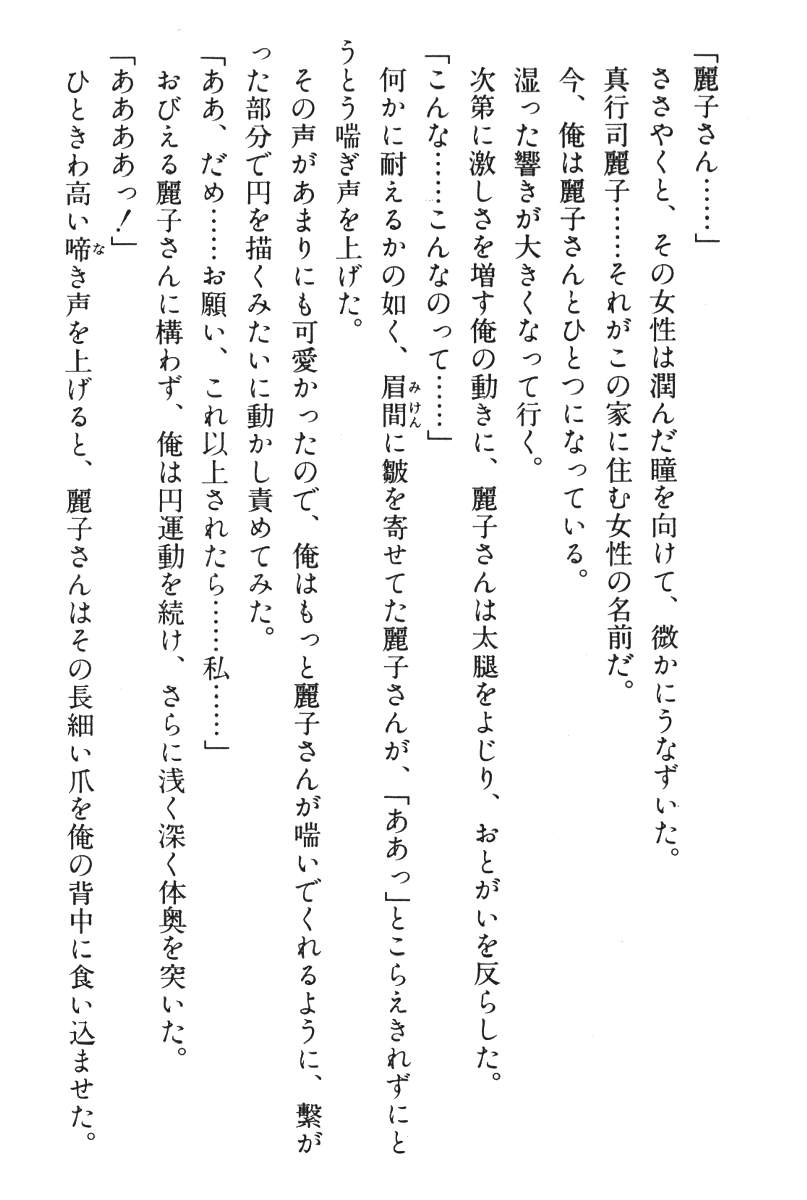 「麗子さん……」
ささやくと、その女性は潤んだ瞳を向けて、微かにうなずいた。
真行司麗子……それがこの家に住む女性の名前だ。
今、俺は麗子さんとひとつになっている。
湿った響きが大きくなって行く。
次第に激しさを増す俺の動きに、麗子さんは太腿をよじり、おとがいを反らした。
「こんな……こんなのって……」
何かに耐えるかの如く、眉間みけんに皺を寄せてた麗子さんが、「ああっ」とこらえきれずにと
うとう喘ぎ声を上げた。
その声があまりにも可愛かったので、俺はもっと麗子さんが喘いでくれるように、繋が
った部分で円を描くみたいに動かし責めてみた。
「ああ、だめ……お願い、これ以上されたら……私……」
おびえる麗子さんに構わず、俺は円運動を続け、さらに浅く深く体奥を突いた。
「ああああっ！」
ひときわ高い啼なき声を上げると、麗子さんはその長細い爪を俺の背中に食い込ませた。